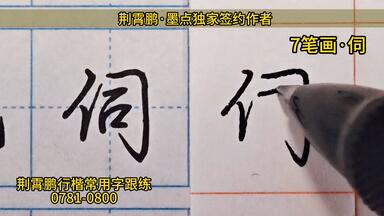 荆霄鹏·墨点独家签约作者
7笔画·伺
伺
荆霄鹏行楷常用字跟练
0781-0800